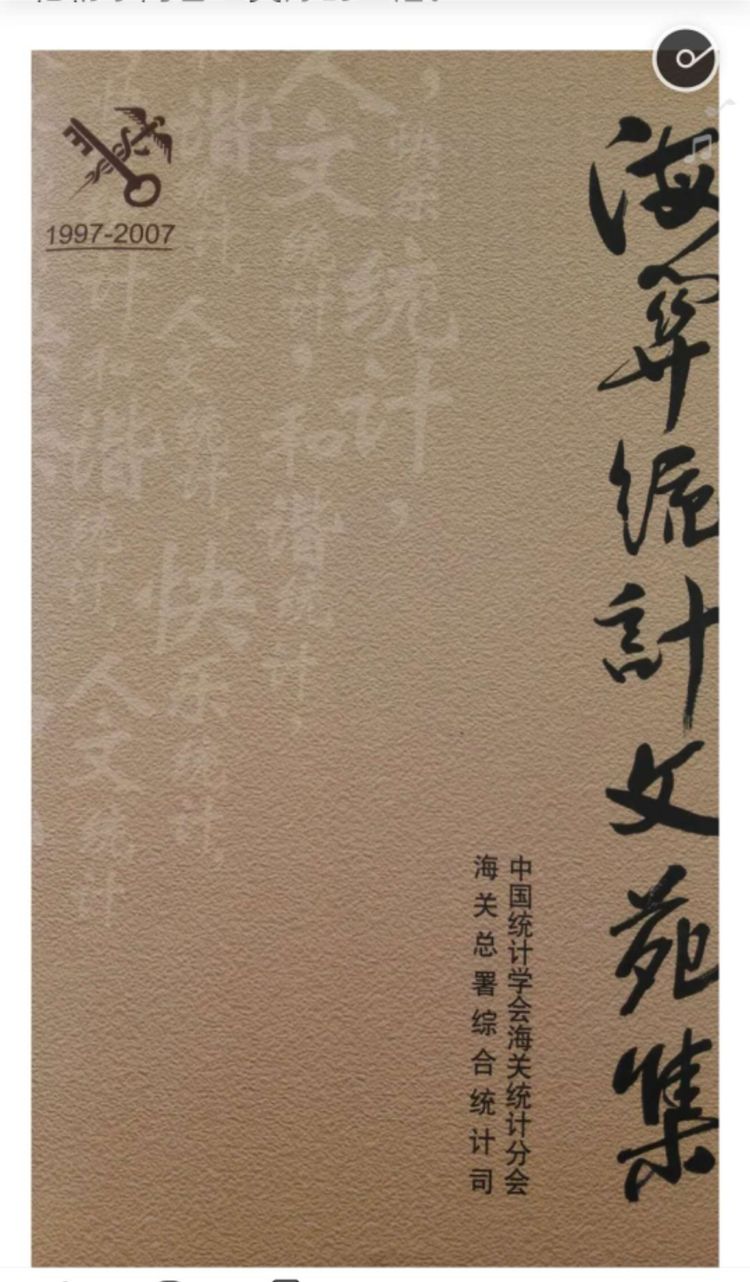 1997-2007
海關統計文苑集
中国统计学会海关统计分会
海关总署综合统计司
，快乐
统计，
人文统计，和谐统计，
谐统计，人文统计，快乐统计，
计和谐统计，人文统计